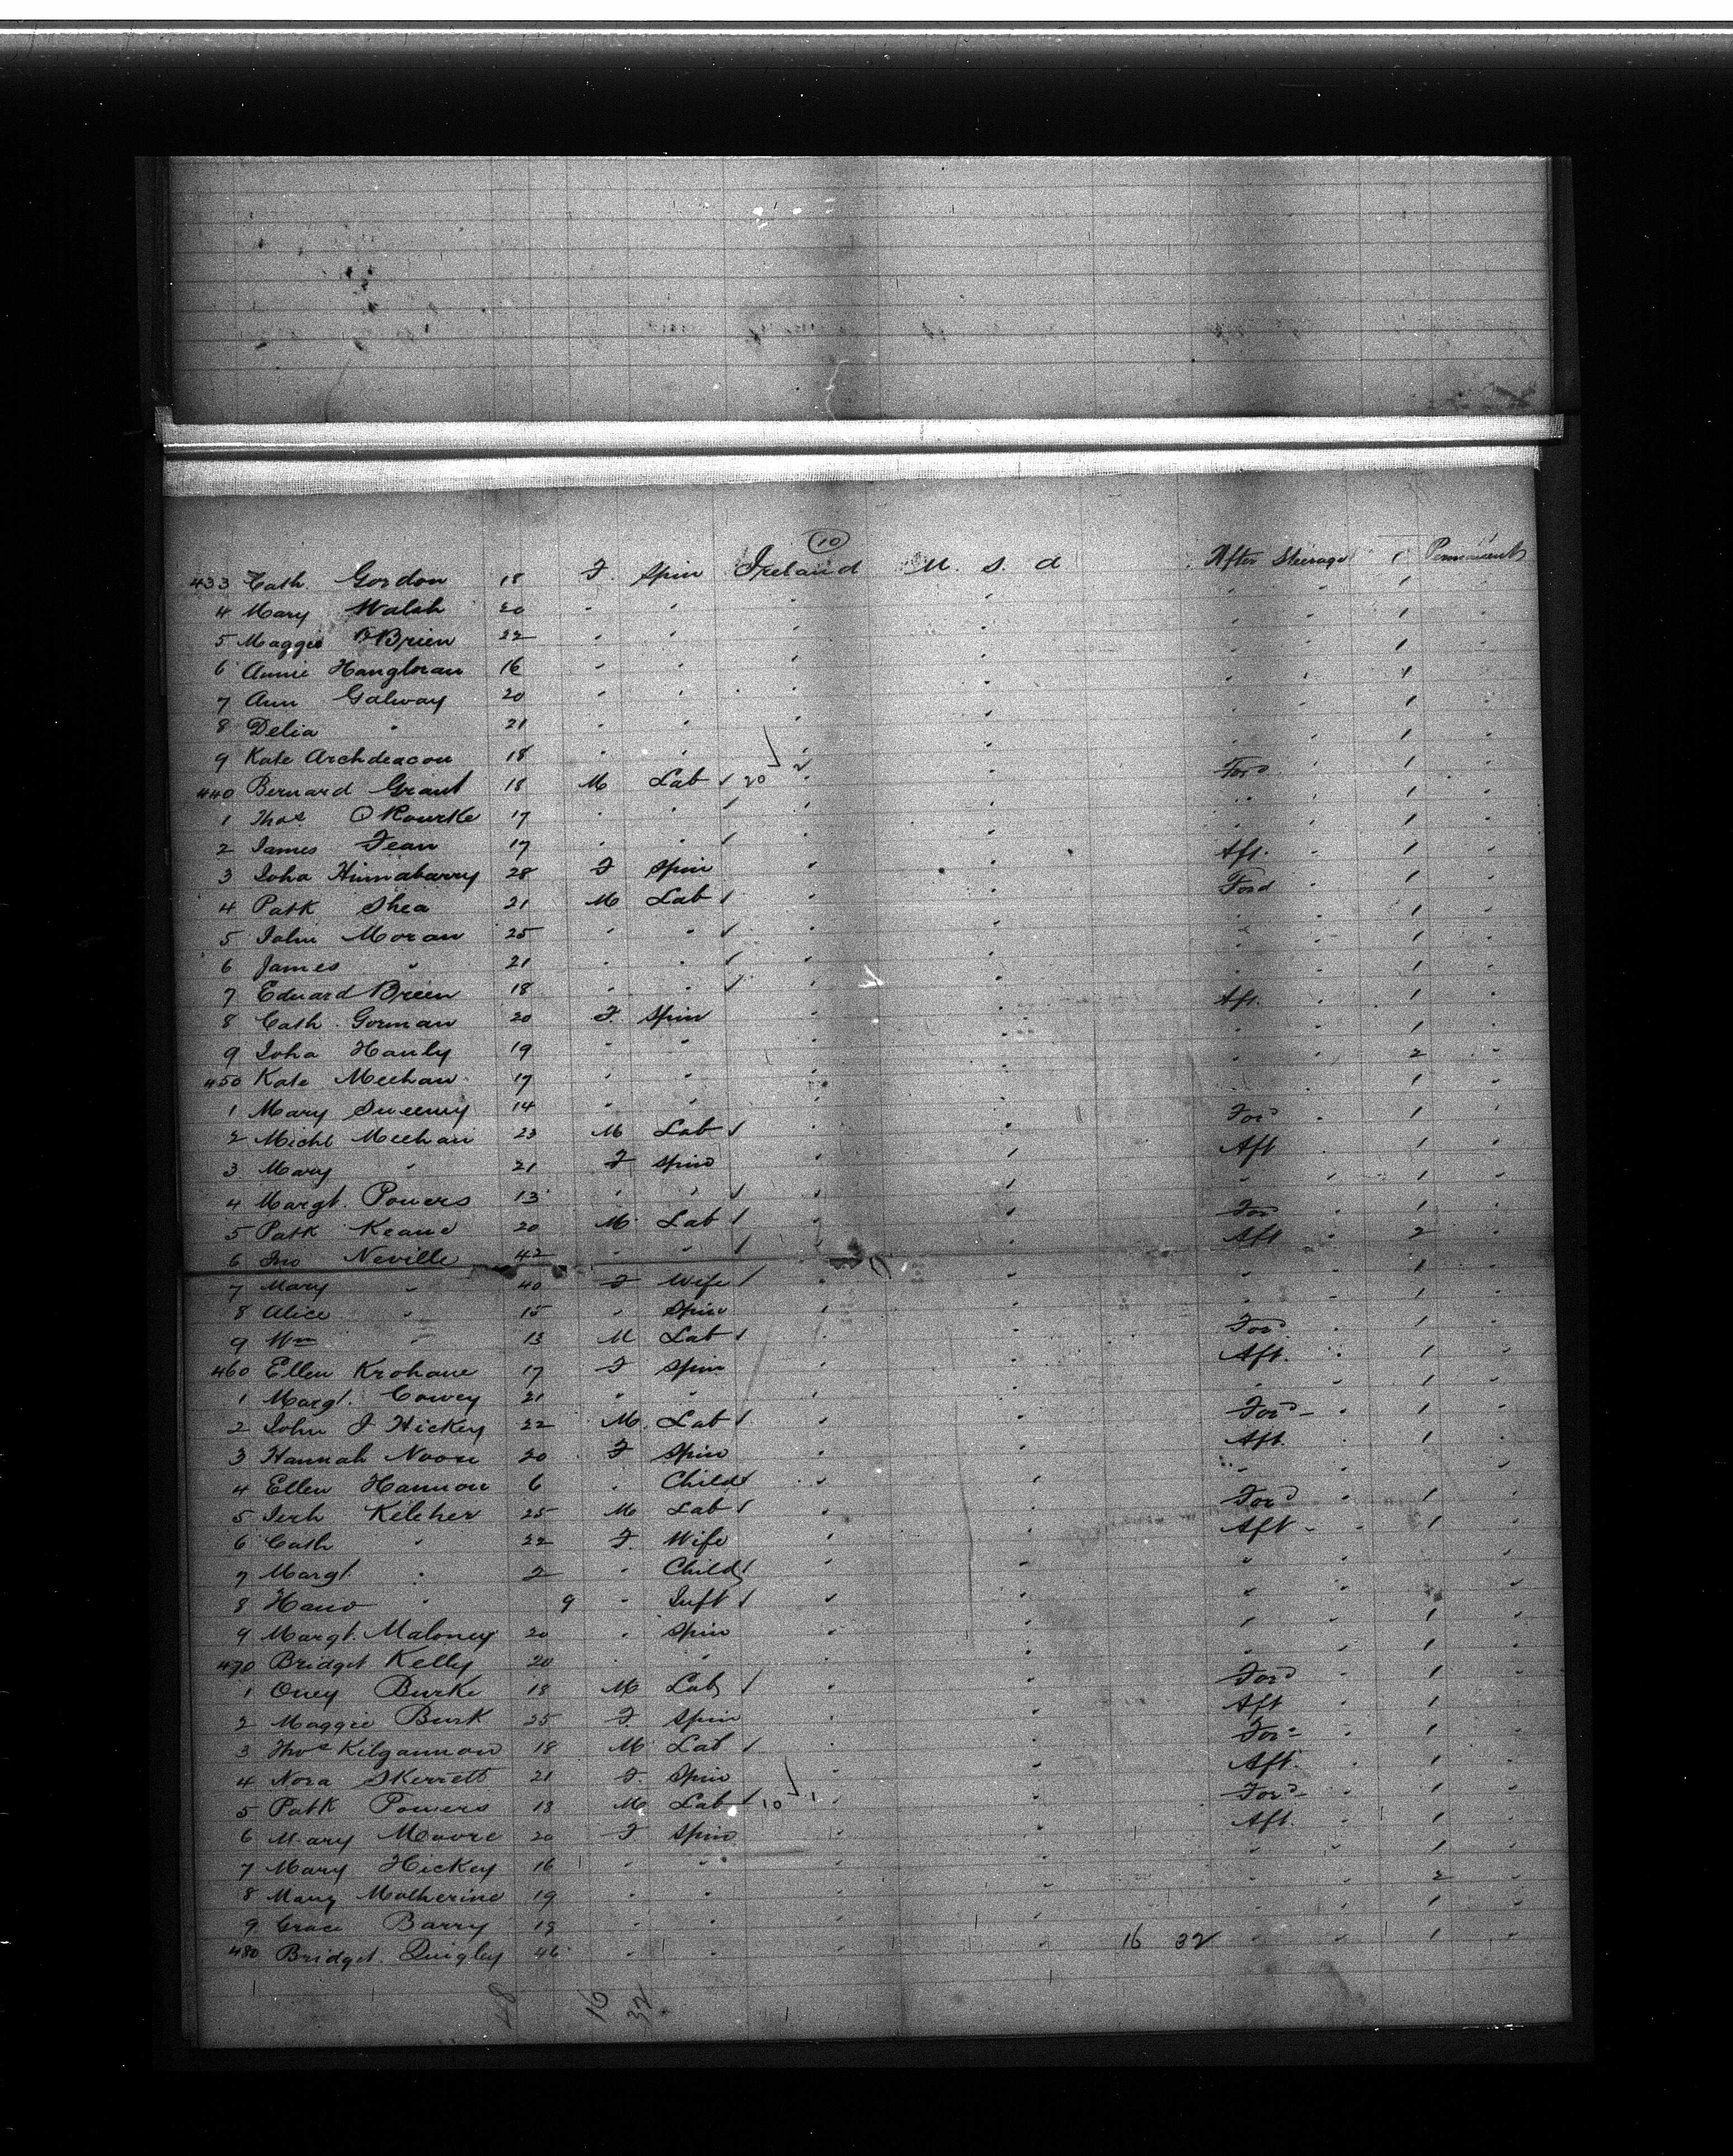 10
433 Cath. Gordon 18 F. Spin Ireland U. S. a After Steerage 1 Permanent
4 Mary Walsh 20 " " " " " " 1 "
5 Maggie O'Brien 22 " " " " " " 1 "
6 Annie Hangloran 16 " " " " " " 1 "
7 Ann Galway 20 " " " " " " 1 "
8 Delia " 21 " " " " " " 1 "
9 Kate Archdeacon 18 " " " " " " 1 "
440 Bernard Grant 18 M Lab 20 2 " " For'd " 1 "
1 Thos. O'Rourke 17 " " " " " " 1 "
2 James Fean 17 " " " " " " 1 "
3 Joha 28 F Spin " " Aft. " 1 "
4 Patk Shea 21 M Lab " " Ford " 1 "
5 John Moran 25 " " " " " " 1 "
6 James " 21 " " " " " " 1 "
7 Edward Breen 18 " " " " " " 1 "
8 Cath. Gorman 20 F. Spin " " Aft. " 1 "
9 Joha Hanly 19 " " " " " " 1 "
450 Kate Meehan 17 " " " " " " 2 "
1 Mary Sweeny 14 " " " " " " 1 "
2 Michl Meehan 23 M Lab " " For'd " 1 "
3 Mary " 21 F Spin " " Aft " 1 "
4 Margt. Powers 13 " " " " " " 1 "
5 Patk Keane 20 M Lab " " For'd " 1 "
6 Jno Neville 42 " " " " Aft " 2 "
7 Mary " 40 F Wife " " " " 1 "
8 Alice " 15 " Spin " " " " 1 "
9 Wm " 13 M Lab " " For'd " 1 "
460 Ellen Krohane 17 F Spin " " Aft. " 1 "
1 Margt. Cowey 21 " " " " " " 1 "
2 John J Hickey 22 M. Lab " " For'd " 1 "
3 Hannah 20 F Spin " " Aft. " 1 "
4 Ellen Hannon 6 " Child " " " "
5 Jerh Keleher 25 M Lab " " For'd " 1 "
6 Cath " 22 F. Wife " " Aft " 1 "
7 Margt. " 2 " Child " " " " "
8 " 9 " Inft " " " " "
9 Margt. Maloney 20 " Spin " " " " 1 "
470 Bridget Kelly 20 " " " " " " 1 "
1 Oney Burke 18 M Lab " " For'd " 1 "
2 Maggie Burk 25 F. Spin " " Aft " 1 "
3 Thos Kilgannon 18 M Lab " " For'd " 1 "
4 Nora Skerrett 21 F. Spin " " Aft. " 1 "
5 Patk Powers 18 M Lab 10 1 " " For'd " 1 "
6 Mary Moore 20 F Spin " " Aft. " 1 "
7 Mary Hickey 16 " " " " " " 1 "
8 Mary Motherine 19 " " " " " " 2 "
9 Grace Barry 19 " " " " " " 1 "
480 Bridget Quigley 46 " " " " 16 32 " " 1 "
48 16 32